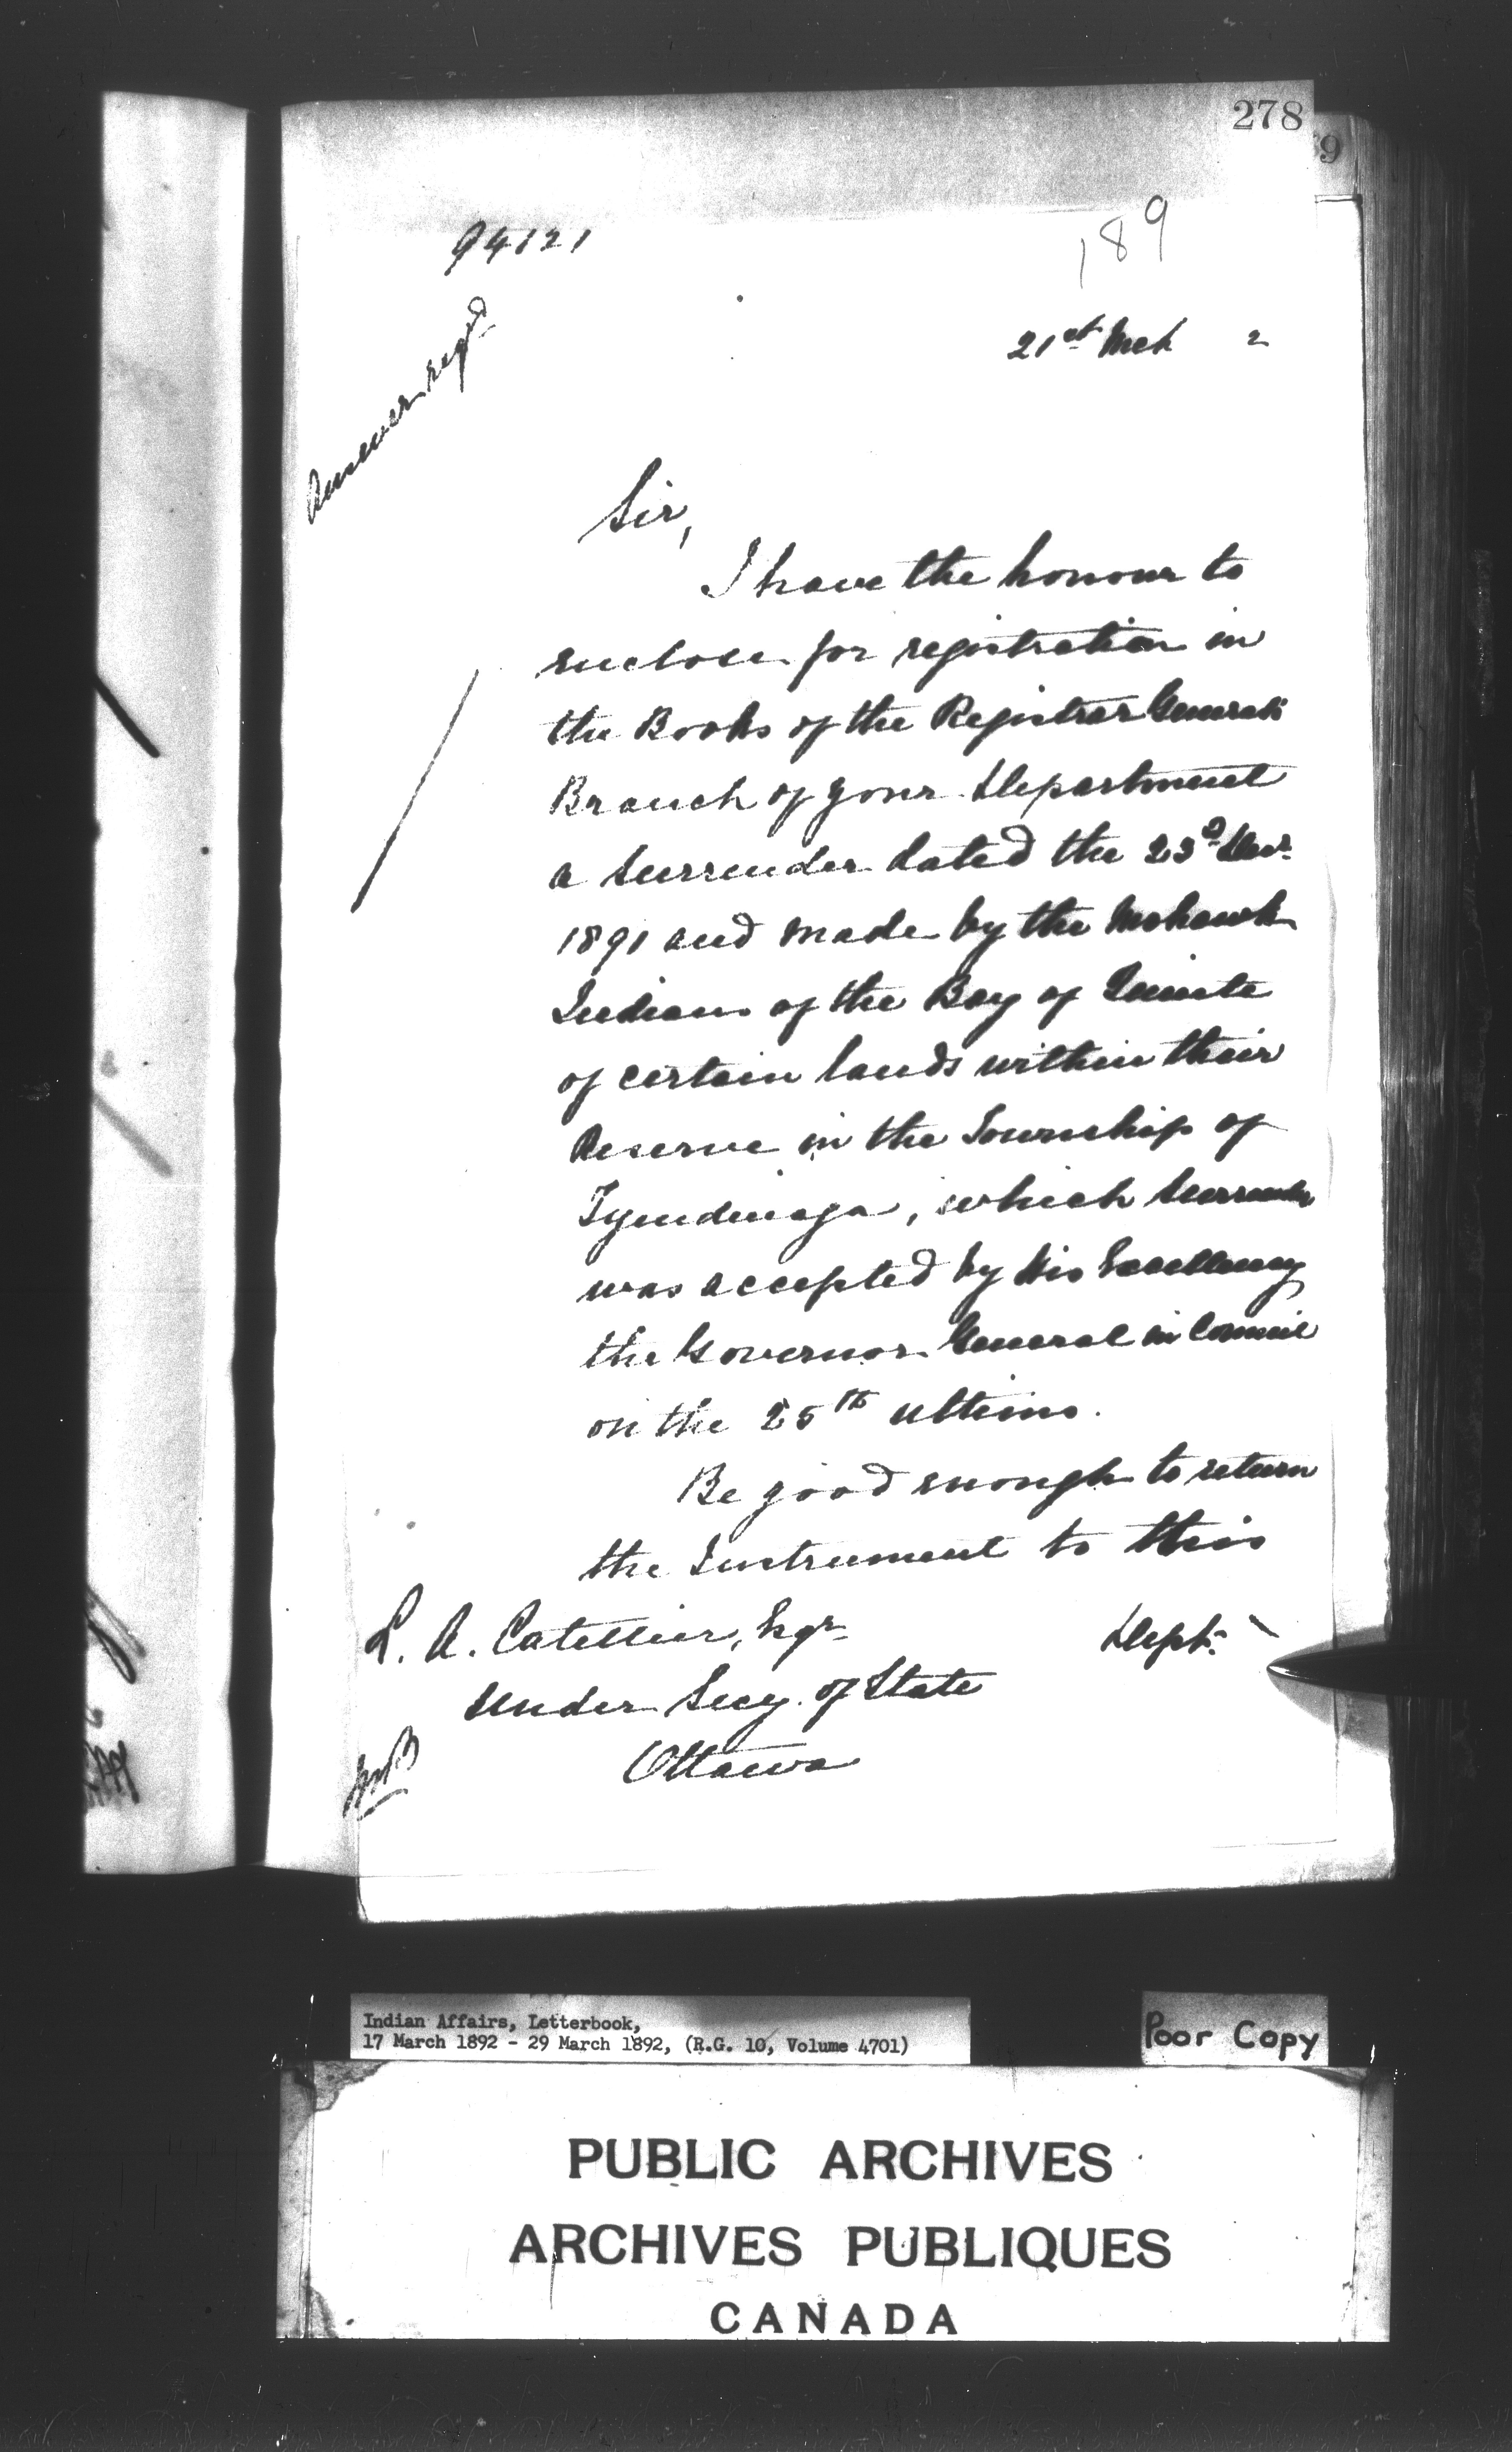 278
94121
189
Answer reqd
21st Mch 2
Sir,
I have the honour to
enclose for registration in
the Books of the Registrar General's
Branch of your Department
a Surrender dated the 23d
1891 and made by the Mohawk
Indians of the Bay of Quinte
of certain lands within their
Reserve in the Township of
Tyendinaga, which Surrender
was accepted by His Excellency
the Governor General in Council
on the 25th ultimo.
Be good enough to return
the Instrument to this
Dept.
L. A. Catellier, Esqr
Under Secy. of State
Ottawa
Indian Affairs, Letterbook,
17 March 1892 - 29 March 1892, (R.G. 10, Volume 4701)
Poor Copy
PUBLIC ARCHIVES
ARCHIVES PUBLIQUES
CANADA